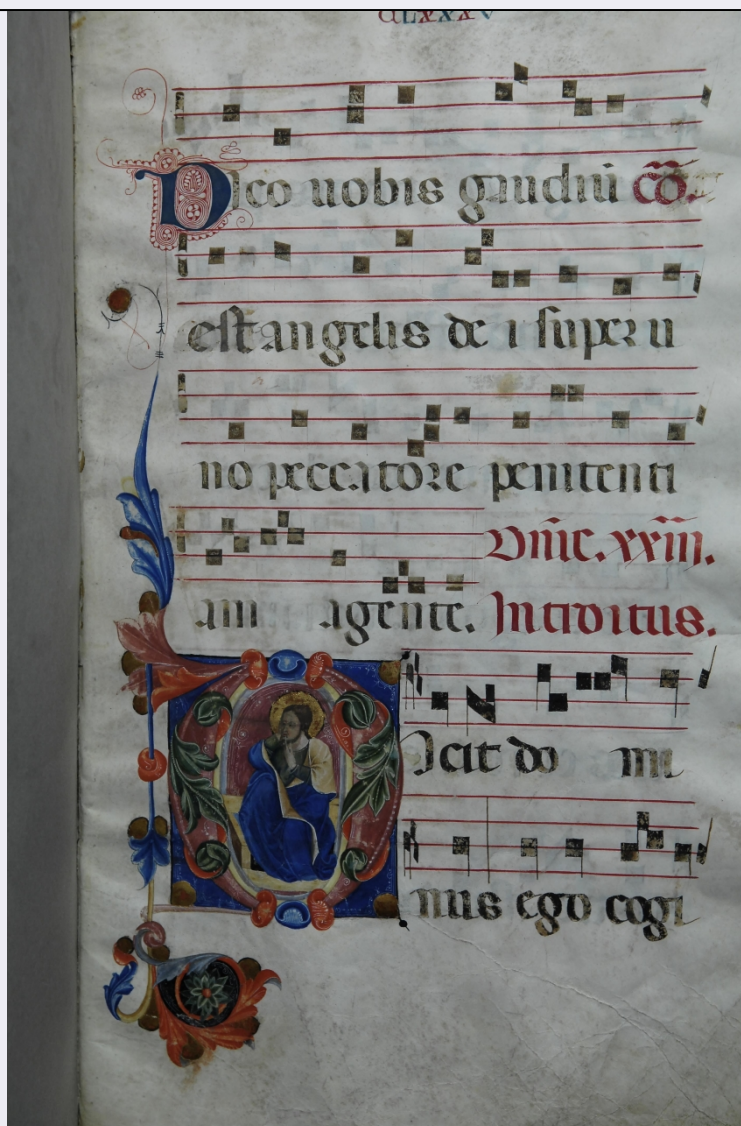 CLXXXV
Dico uobis gaudiũ cõ.
est angelis de i super u
no peccatore penitenti
am agente. Dñic. xxiii.
Introitus.
Dicit do mi
nus ego cogi